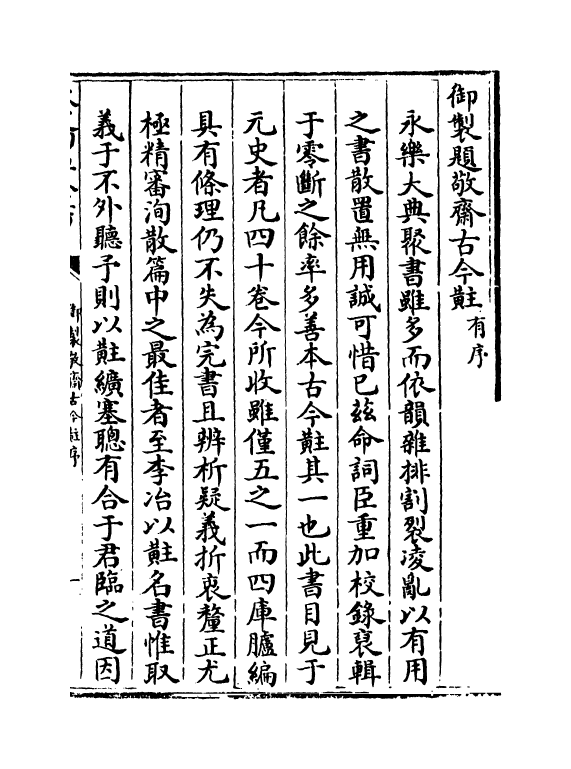 御製題敬齋古今黈有序
永樂大典聚書雖多而依韻雜排割裂淩亂以有用
之書散置無用誠可惜已茲命詞臣重加校錄裒輯
于零斷之餘率多善本古今黈其一也此書目見于
元史者凡四十卷今所收雖僅五之一而四庫臚編
具有條理仍不失為完書且辨析疑義折衷釐正尤
極精審洵散篇中之最佳者至李冶以黈名書惟取
義于不外聽予則以黈纊塞聰有合于君臨之道因
御製敬齋古今黈序
一